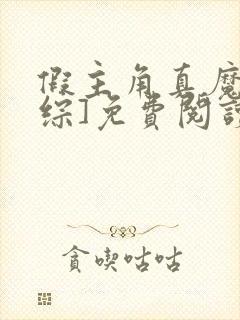 假主角真魔
综]免費閱讀
貪喫咕咕